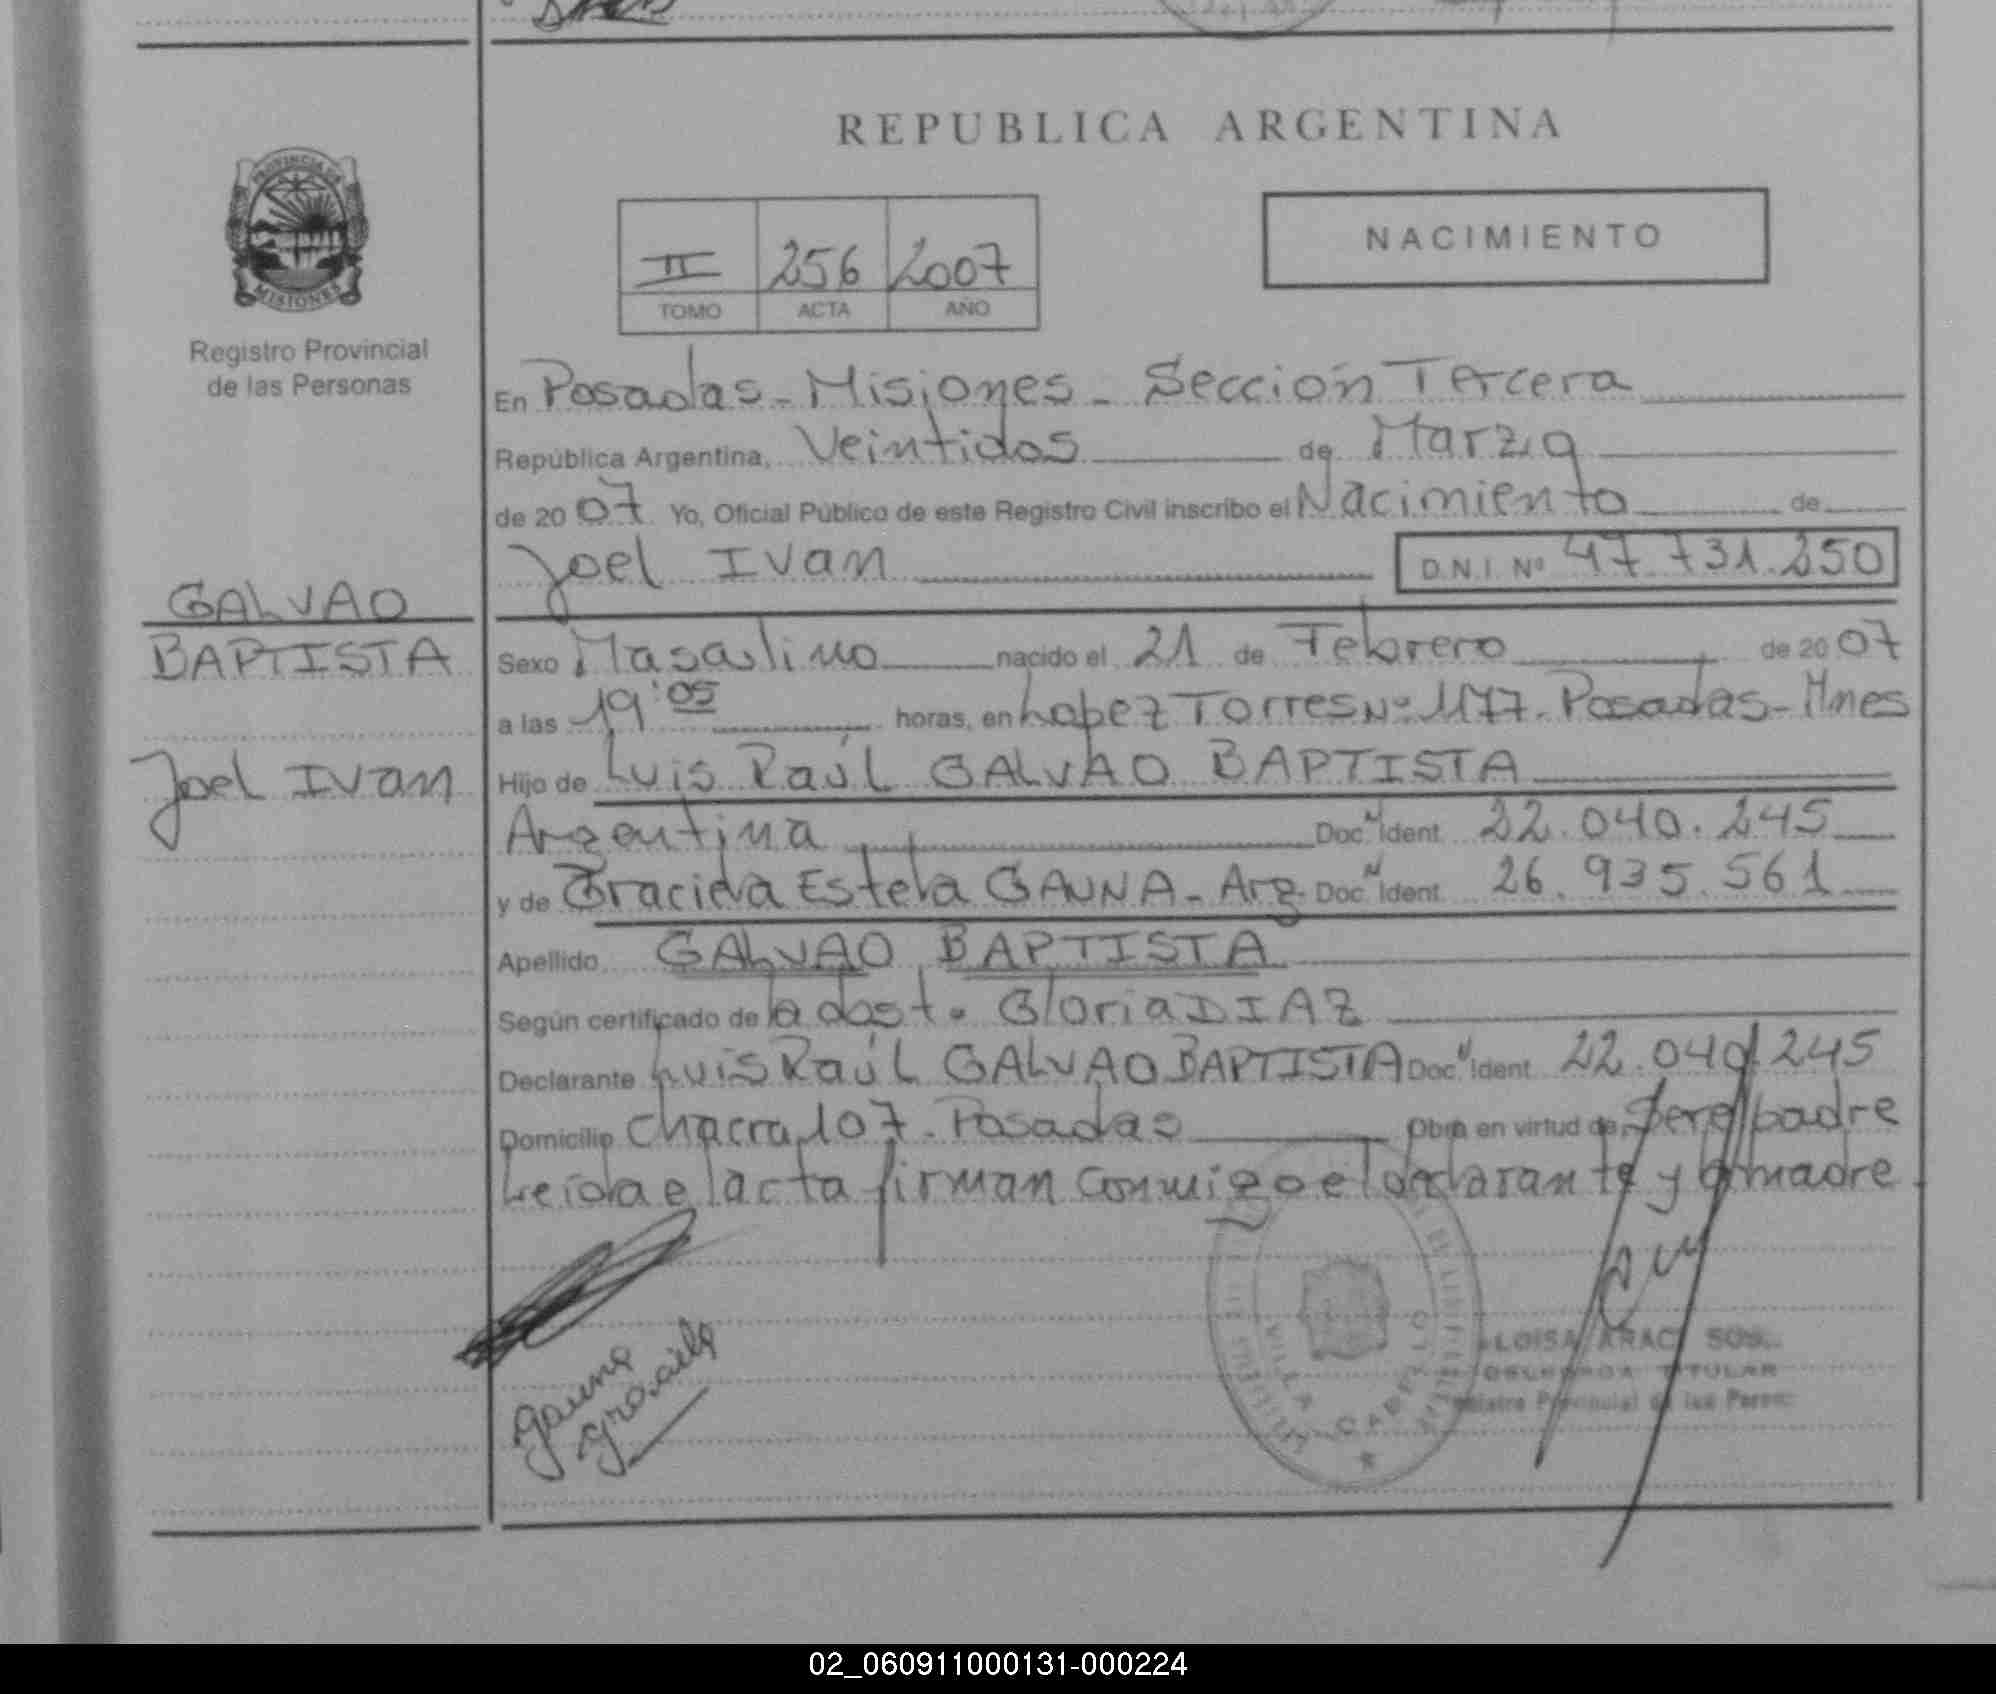 REPUBLICA ARGENTINA
PROVINCIA DE
MISIONES
Registro Provincial
de las Personas
II 256 2007
TOMO ACTA AÑO
NACIMIENTO
En Posadas - Misiones - Sección Tercera
República Argentina, Veintidos de Marzo
de 2007 Yo, Oficial Público de este Registro Civil inscribo el Nacimiento de
Joel Ivan D.N.I. Nº 47.731.250
GALVAO
BAPTISTA
Joel Ivan
Sexo Masculino nacido el 21 de Febrero de 2007
a las 19:05 horas, en Lopez Torres Nº 1177. Posadas - Mnes
Hijo de Luis Raúl GALVAO BAPTISTA
Argentina Doc. Ident. 22.040.245
y de Graciela Estela GAUNA - Arg. Doc. Ident. 26.935.561
Apellido GALVAO BAPTISTA
Según certificado de la obst. Gloria DIAZ
Declarante Luis Raúl GALVAO BAPTISTA Doc. Ident. 22.040.245
Domicilio Chacra 107 - Posadas Obra en virtud de Ser el padre
Leída el acta firman conmigo el declarante y la madre
gauna
graciela
VILLA CABELLO
TITULAR
02_060911000131-000224